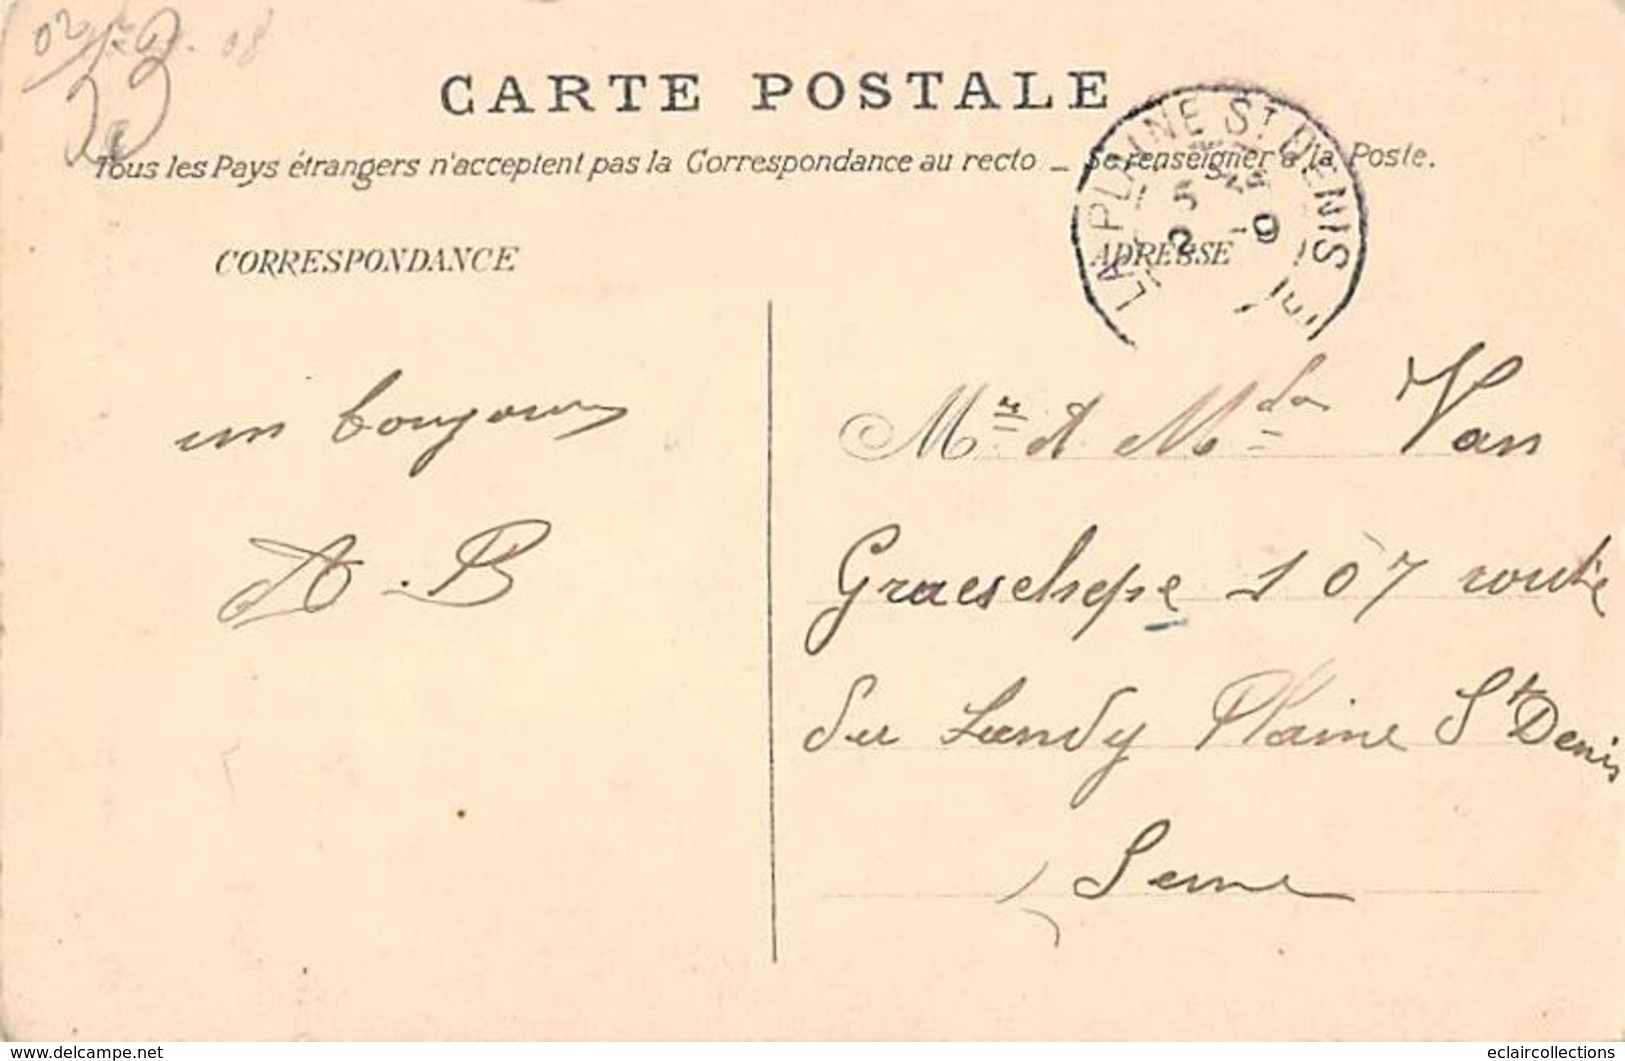 02
23
08
CARTE POSTALE
Tous les Pays étrangers n'acceptent pas la Correspondance au recto _ Se renseigner à la Poste.
LA PLAINE ST DENIS
5
2 -0
CORRESPONDANCE
ADRESSE
un bonjour
A. B
Mr et Mde Van
Graeschepe 107 route
du Landy Plaine St Denis
Seine
www.delcampe.net
eclaircollections